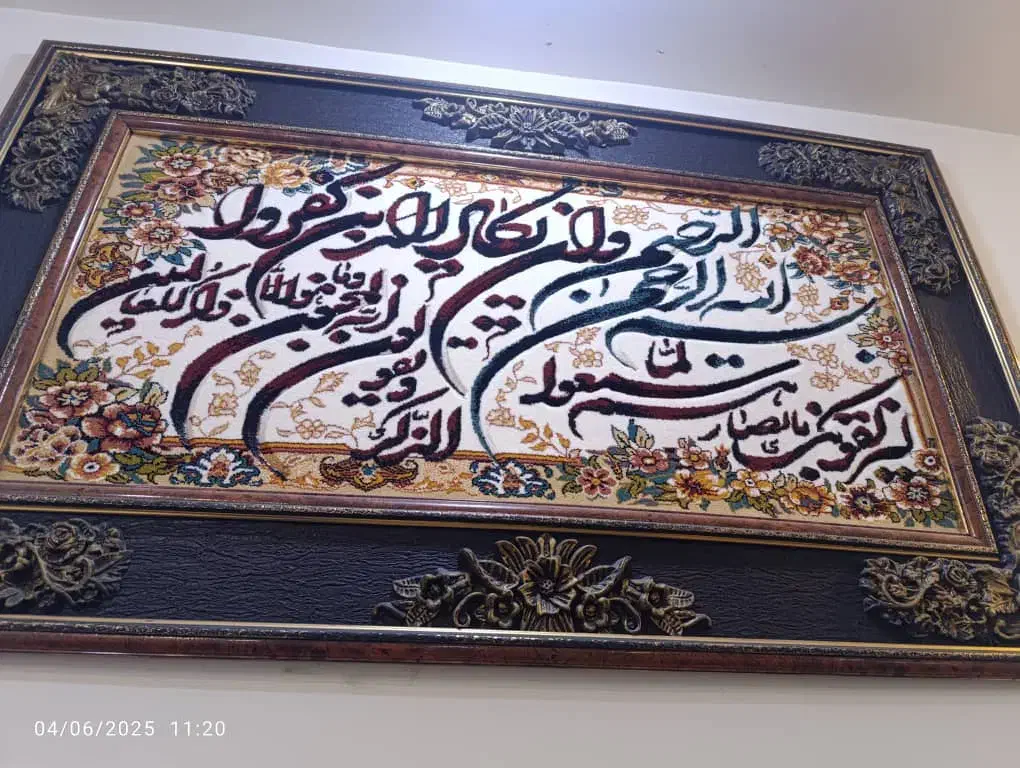 بسم الله الرحمن الرحیم
وان یکاد الذین کفروا
لیزلقونک بابصارهم لما سمعوا
الذکر ویقولون انه لمجنون وما هو الا
ذکر للعالمین
04/06/2025 11:20